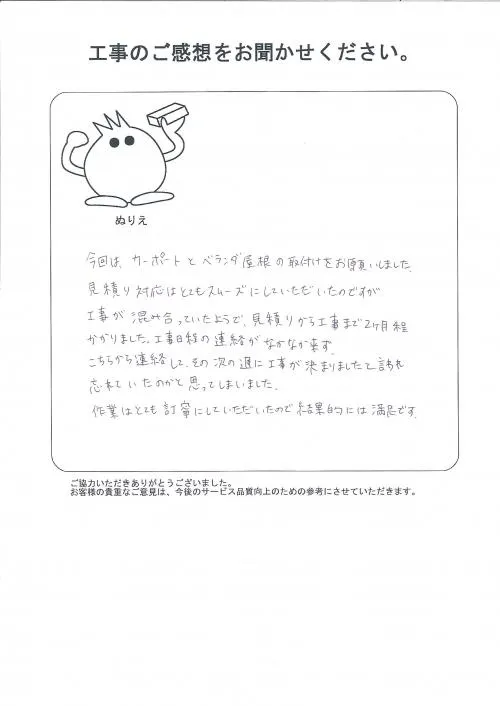 工事のご感想をお聞かせください。
ぬりえ
今回は、カーポートとベランダ屋根の取付けをお願いしました。
見積り対応はとてもスムーズにしていただいたのですが
工事が混み合っていたようで、見積りから工事まで2ヶ月程
かかりました。工事日程の連絡がなかなか来ず、
こちらから連絡して、その次の週に工事が決まりましたと言われ
忘れていたのかと思ってしまいました。
作業はとても丁寧にしていただいたので結果的には満足です。
ご協力いただきありがとうございました。
お客様の貴重なご意見は、今後のサービス品質向上のための参考にさせていただきます。